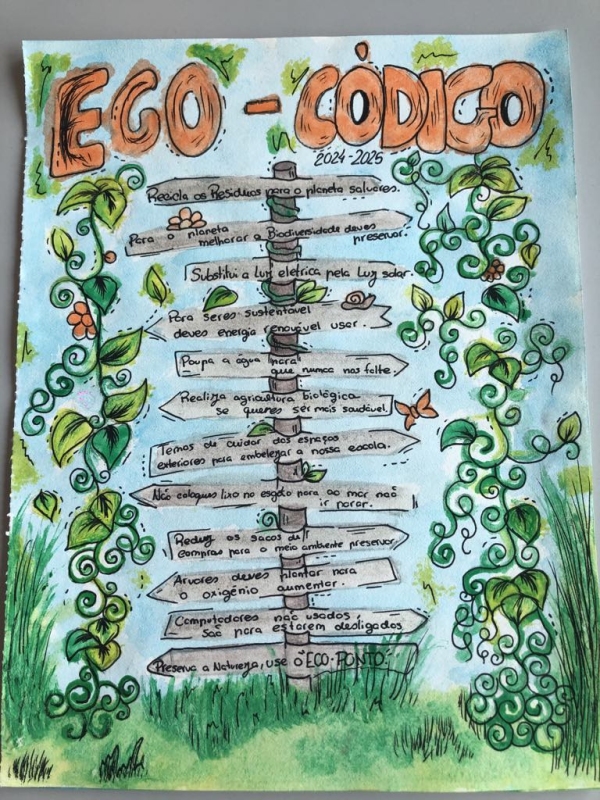 ECO - CÓDIGO
2024-2025
Recicla os Resíduos para o planeta salvares.
Para o planeta
melhorar a Biodiversidade deves
preservar.
Substitui a Luz elétrica pela Luz solar.
Para seres sustentável
deves energia renovável usar.
Poupa a água para
que nunca nos falte.
Realiza agricultura biológica
se queres ser mais saudável.
Temos de cuidar dos espaços
exteriores para embelezar a nossa escola.
Não coloques lixo no esgoto para ao mar não
ir parar.
Reduz os sacos de
compras para o meio ambiente preservar.
Árvores deves plantar para
o oxigénio aumentar.
Computadores não usados,
são para estarem desligados.
Preserva a Natureza, use o "ECO-PONTO".